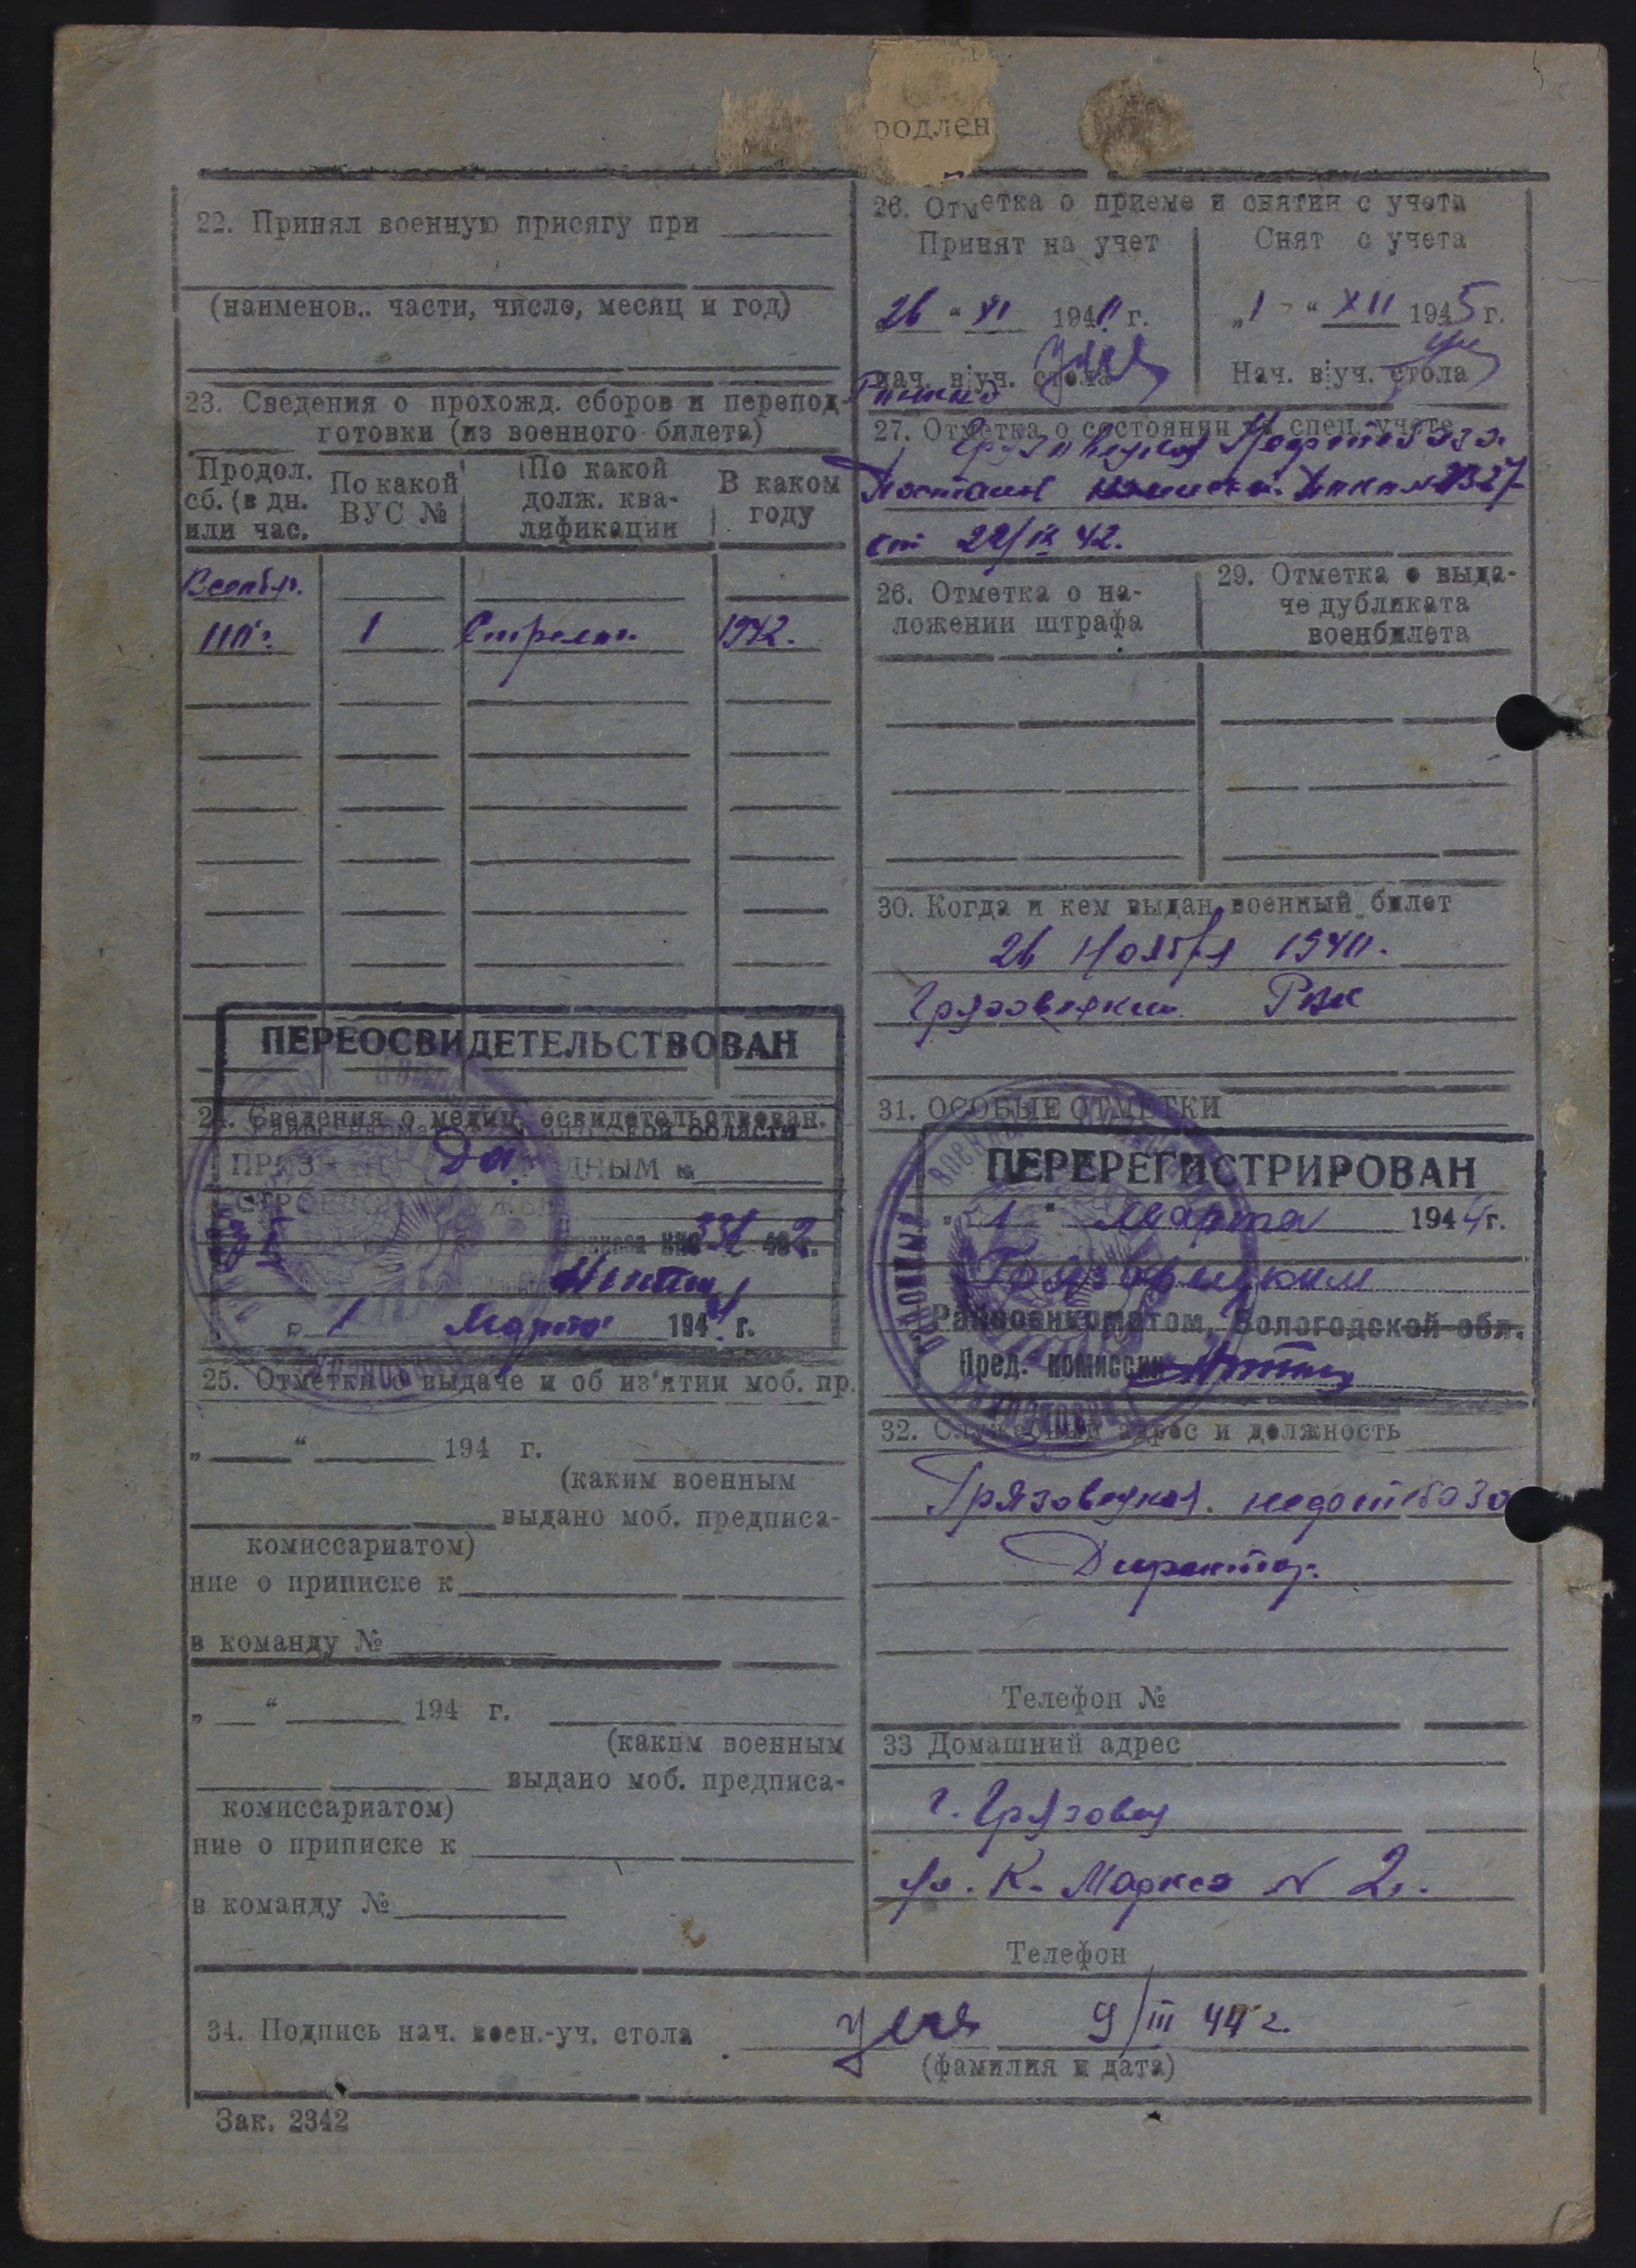 родлен
22. Принял военную присягу при
(наименов.. части, число, месяц и год)
23. Сведения о прохожд. сборов и перепод-
готовки (из военного билета)
Продол. сб. (в дн. или час.
По какой ВУС №
По какой долж. ква-лификации
В каком году
Всеобуч.
110ч. 1 Стрелк. 1942.
ПЕРЕОСВИДЕТЕЛЬСТВОВАН
24. Сведения о медиц. освидетельствован.
области
ПРИЗ ДНЫМ к
1 Марта 194 г.
25. Отметки о выдаче и об из'ятии моб. пр.
„ “ 194 г.
(каким военным
выдано моб. предписа-
комиссариатом)
ние о приписке к
в команду №
„ “ 194 г.
(каким военным
выдано моб. предписа-
комиссариатом)
ние о приписке к
в команду №
26. Отметка о приеме и снятии с учета
Принят на учет
Снят с учета
26 “ XI 194 г.
„1 “ XII 1945 г.
Нач. в.уч. стола
Нач. в.уч. стола
27. Отметка о состоянии на спец. учете
Грязовецкая Нефтебаза
от 22/IX 42.
26. Отметка о на-
ложении штрафа
29. Отметка о выда-
че дубликата
военбилета
30. Когда и кем выдан военный билет
26 Ноября 194
Грязовецким РВК
31. ОСОБЫЕ ОТМЕТКИ
ПЕРЕРЕГИСТРИРОВАН
„ 1 “ Марта 1944 г.
Грязовецким
Райвоенкоматом, Вологодской обл.
Пред. комиссии
32. Служебный адрес и должность
Грязовецкая. недотебаза
Директор.
Телефон №
33 Домашний адрес
г. Грязовец
ул. К. Маркса N 2.
Телефон
34. Подпись нач. воен.-уч. стола 9/III 44 г.
(фамилия и дата)
Зак. 2342